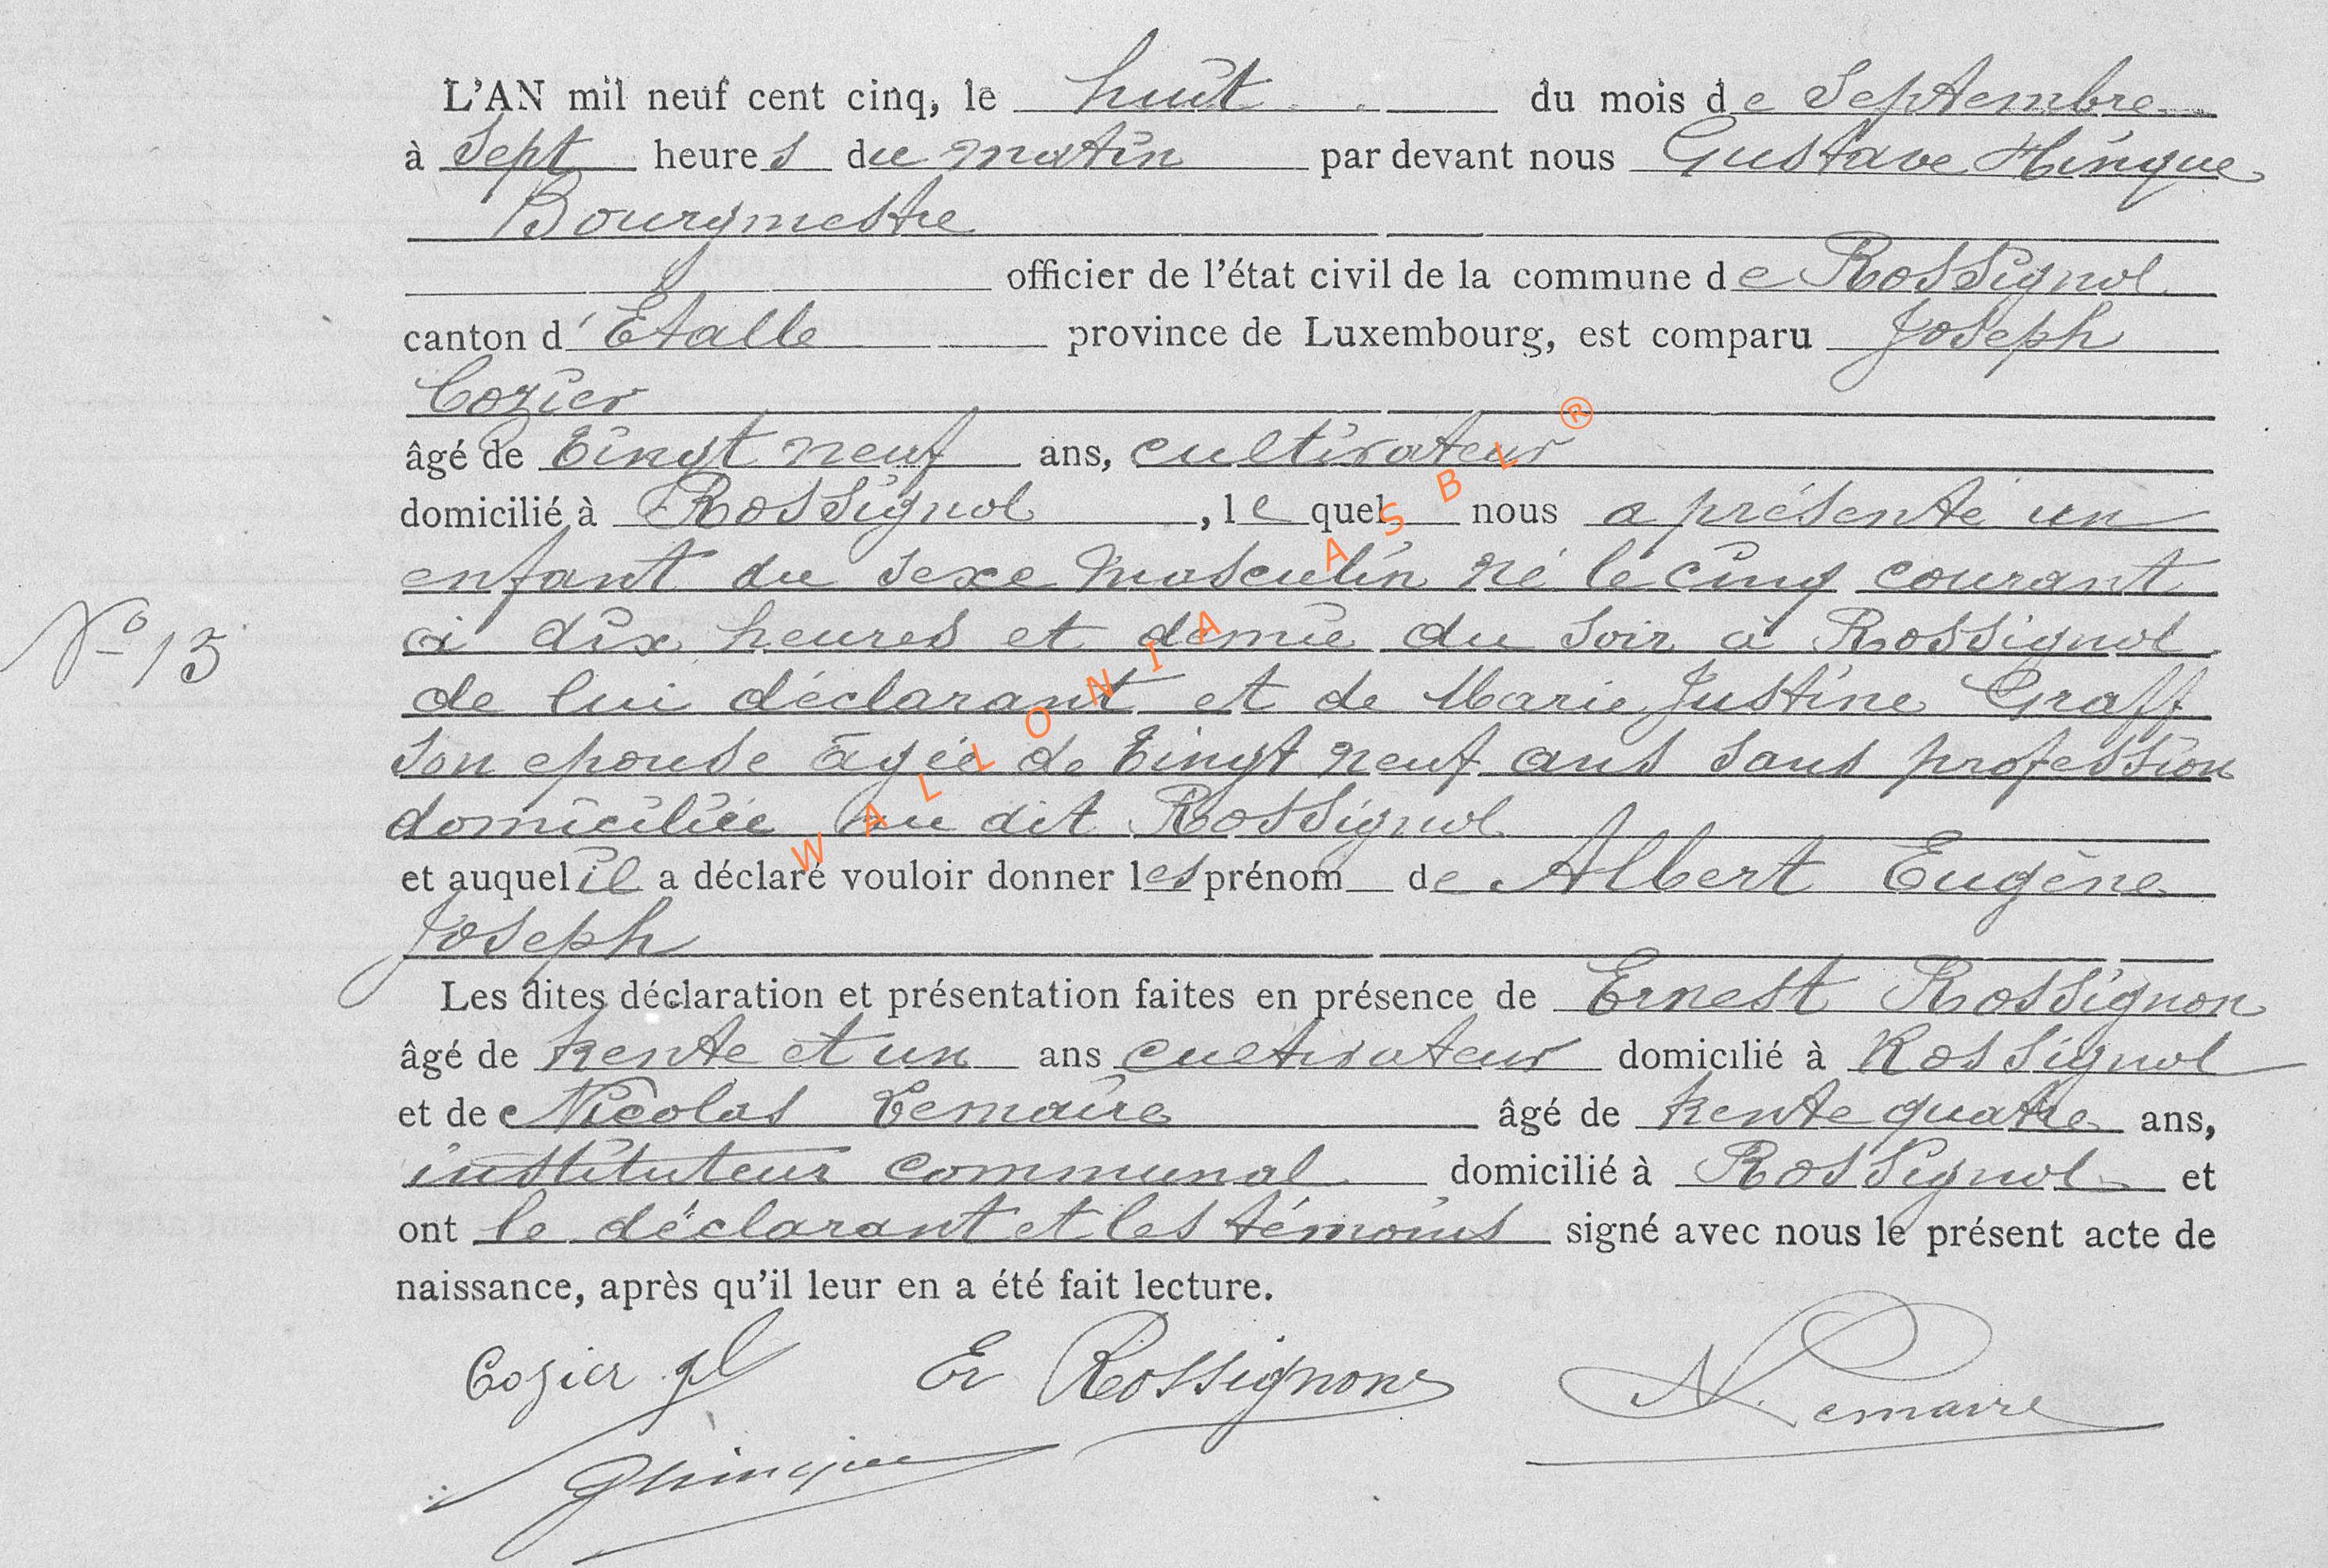 L'AN mil neuf cent cinq, le huit du mois de Septembre
à Sept heures du matin par devant nous Gustave Hinque
Bourgmestre
officier de l'état civil de la commune de Rossignol
canton d'Etalle province de Luxembourg, est comparu Joseph
Cozier
âgé de Vingt neuf ans, cultivateur
domicilié à Rossignol, lequel nous a présenté un
enfant du sexe masculin né le cinq courant
N° 13
à dix heures et demie du soir à Rossignol
de lui déclarant et de Marie Justine Graff
son epouse âgée de Vingt neuf ans sans profession
domiciliée au dit Rossignol
et auquel il a déclaré vouloir donner les prénom de Albert Eugène
Joseph
Les dites déclaration et présentation faites en présence de Ernest Rossignon
âgé de trente et un ans cultivateur domicilié à Rossignol
et de Nicolas Lemaire âgé de trente quatre ans,
instituteur communal domicilié à Rossignol et
ont le déclarant et les témoins signé avec nous le présent acte de
naissance, après qu'il leur en a été fait lecture.
Cozier Er Rossignon N Lemaire
GHinque
WALLONIA ASBL ®